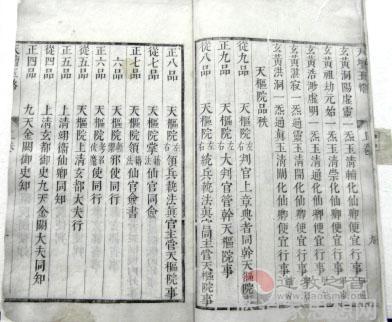 天壇玉格
玄黃洞陽虛靈一炁通眞玉清輔化仙卿便宜行事
玄黃祖劫元始一炁通眞玉清崇化仙卿便宜行事
玄黃浩渺虛明一炁通眞玉清闡化仙卿便宜行事
玄黃洪湛寂一炁通眞玉清開化仙卿便宜行事
天樞院品秩
從九品 天樞院左右判官上章典者同幹天樞院事
正九品 天樞院左右大判官管幹天樞院事
從八品 天樞院左右統兵執法眞官同主管天樞院事
正八品 天樞院左右領兵執法眞官主管天樞院事
從七品 天樞院掌法仙官同僉書
正七品 天樞院領仙官僉書
從六品 天樞院使同行
正六品 天樞院邪使同行
從五品 上清玄都大夫行
正五品 上清翊衛仙卿同知
從四品 上清玄都御史九天金闕大夫同知
正四品 九天金闕御史知
道教之音